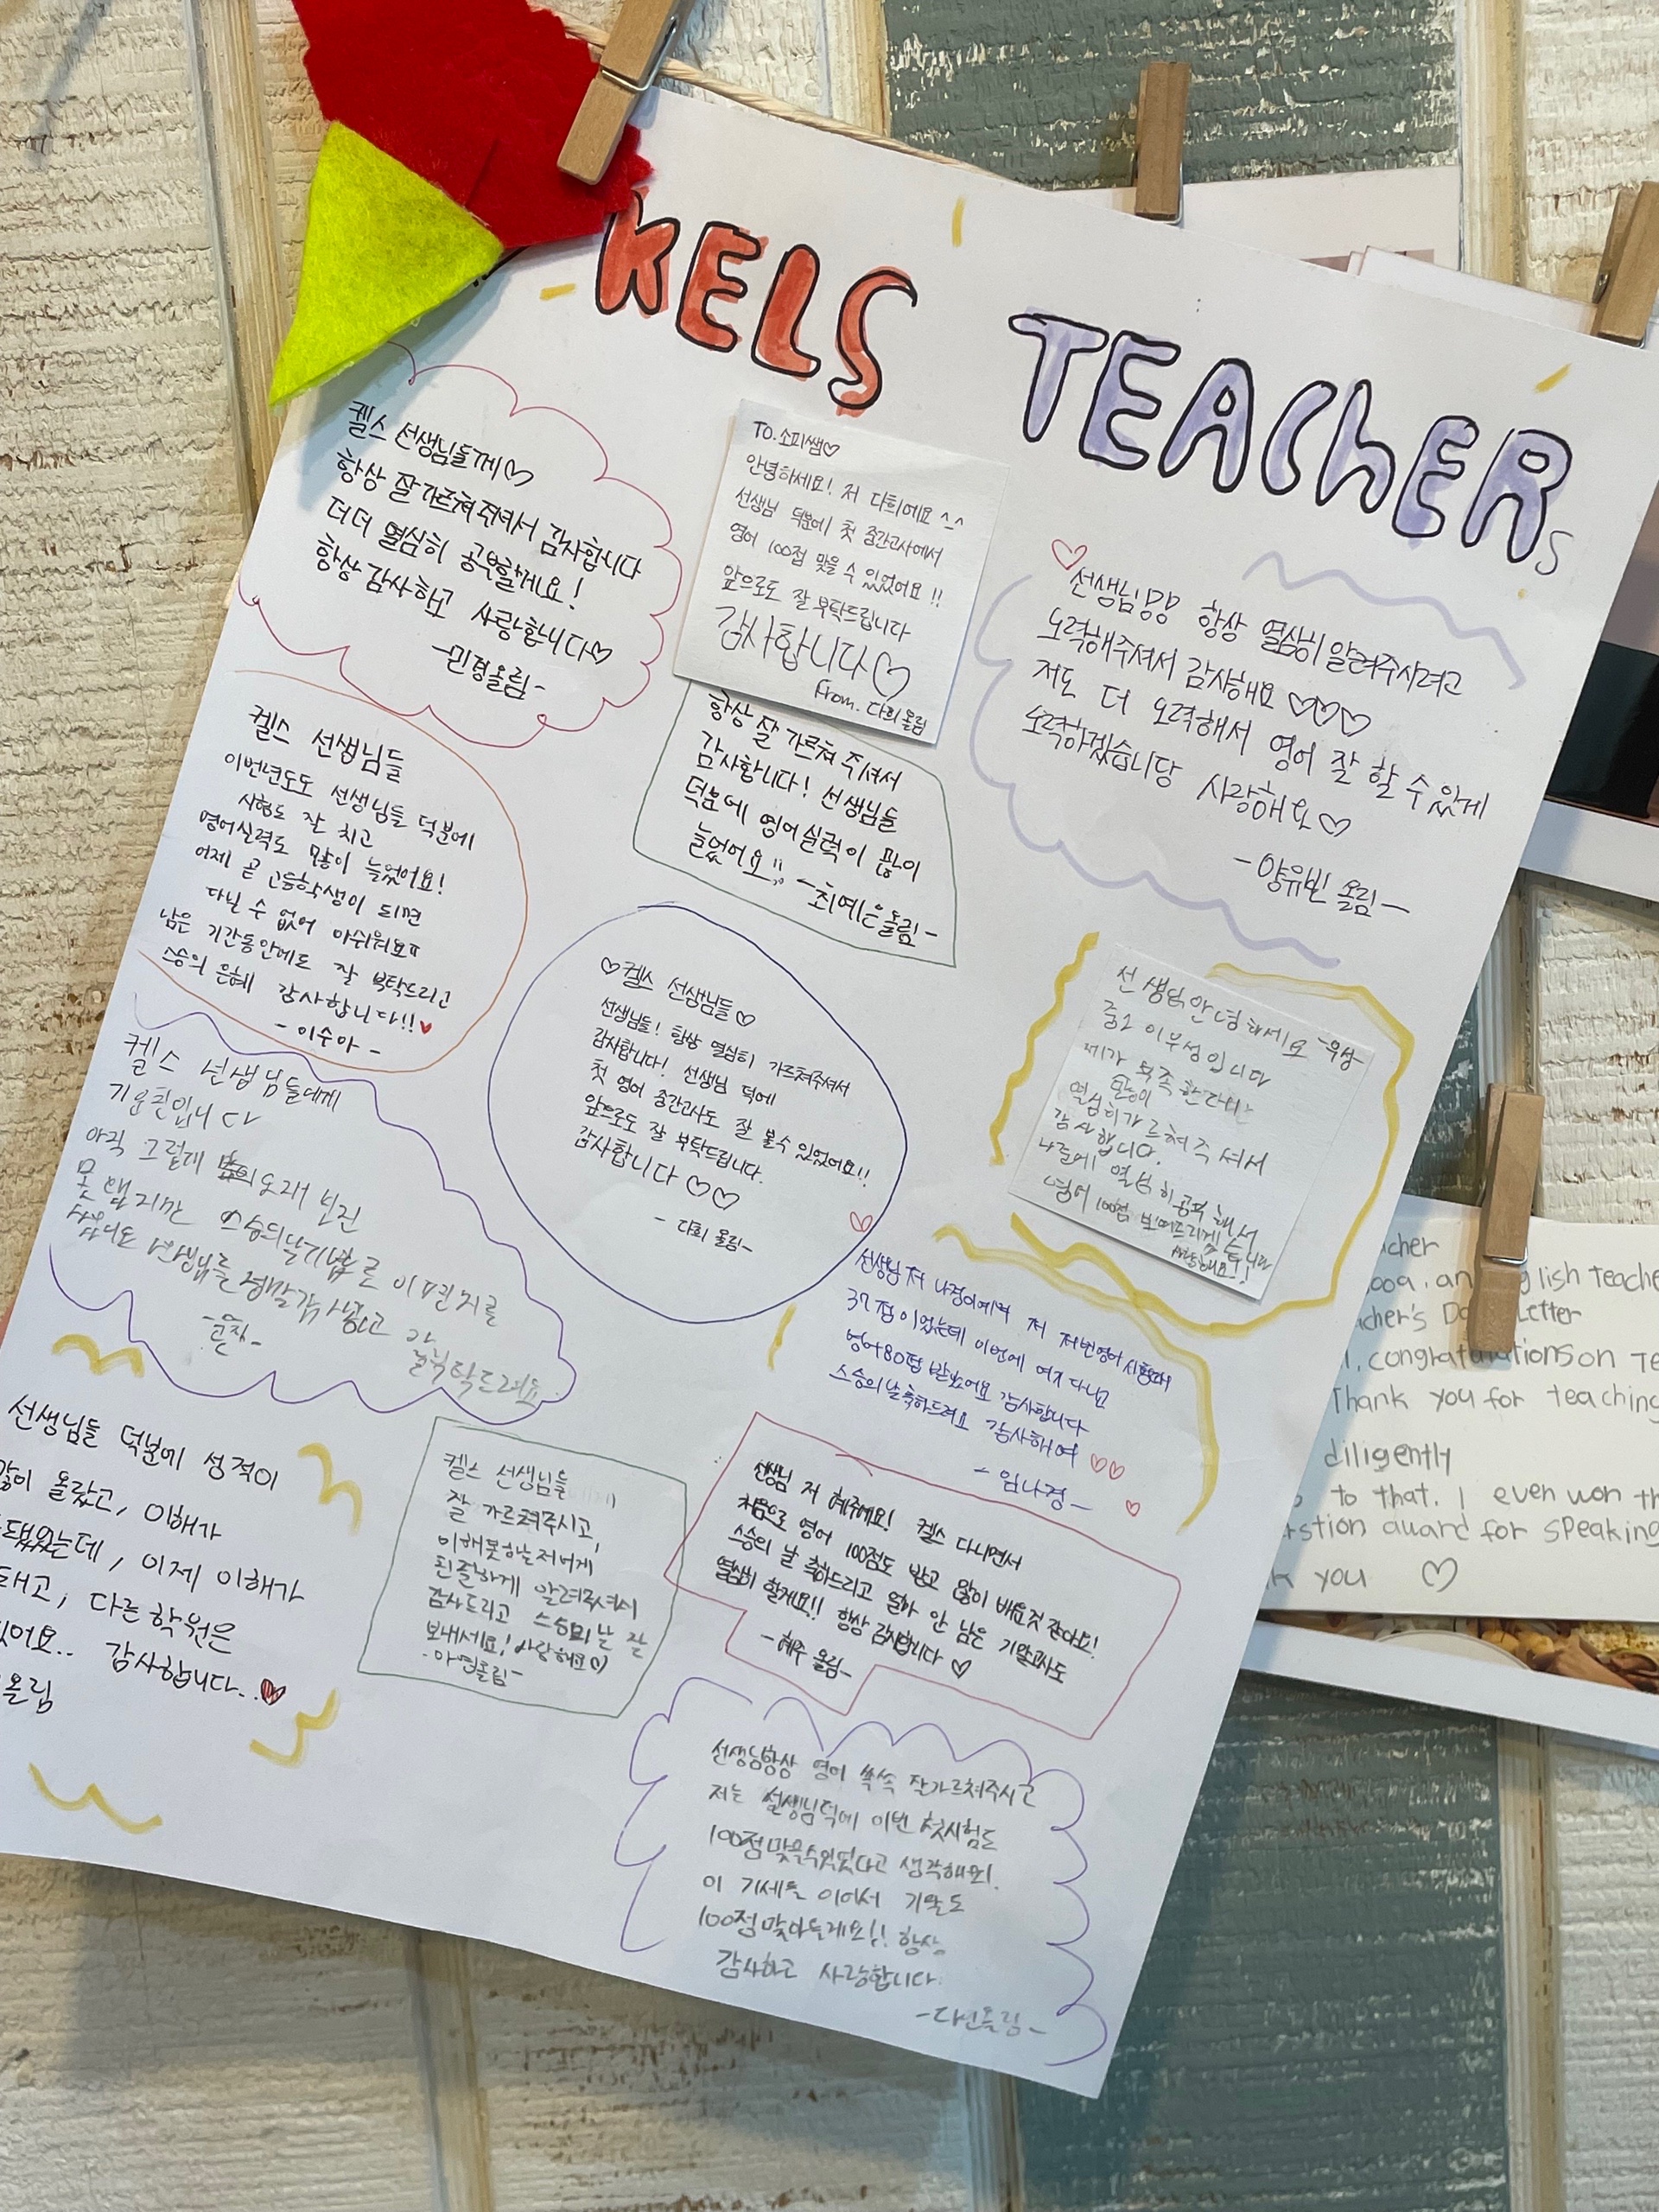 KELS TEACHERS
켈스 선생님들께♡
항상 잘 가르쳐주셔서 감사합니다
더더 열심히 공부할게요!
항상 감사하고 사랑합니다♡
-민경올림-
To.소피쌤♡
안녕하세요! 저 다희에요^-^
선생님 덕분에 첫 중간고사에서
영어 100점 맞을 수 있었어요!!
앞으로도 잘 부탁드립니다
감사합니다♡
From. 다희 올림
♡선생님 항상 열심히 알려주시려고
노력해주셔서 감사해요♡♡♡
저도 더 노력해서 영어 잘 할 수 있게
노력하겠습니당 사랑해요♡
-양유빈 올림-
켈스 선생님들
이번년도도 선생님들 덕분에
시험도 잘 치고
영어실력도 많이 늘었어요!
이제 곧 고등학생이 되면
다닐 수 없어 아쉬워요ㅠ
남은 기간동안에도 잘 부탁드리고
스승의 은혜 감사합니다!!♥
-이수아-
항상 잘 가르쳐 주셔서
감사합니다! 선생님들
덕분에 영어 실력이 많이
늘었어요!!
-최예은올림-
♡켈스 선생님들♡
선생님들! 항상 열심히 가르쳐주셔서
감사합니다! 선생님 덕에
첫 영어 중간고사도 잘 볼수 있었어요!!
앞으로도 잘 부탁드립니다.
감사합니다♡♡
-다희 올림-
선생님 안녕하세요
중2 이우성입니다
제가 부족한데
열심히 가르쳐주셔서
감사합니다.
나중에 열심히 공부해서
영어 100점 보여드리게습니다
사랑해요!!
켈스 선생님들에게
기윤찬입니다
아직 그렇게 오래 다닌진
못했지만 스승의날기념으로 이 편지를
선생님들 정말감사하고 잘부탁드려요
-윤찬-
선생님 저 나경이에여 저 저번영어 시험때
37점 이었는데 이번에 여기 다니고
영어80점 받았어요 감사합니다
스승의날 축하드려요 감사해여♡♡
-임나경-
선생님들 덕분에 성적이
많이 올랐고, 이해가
었는데, 이제 이해가
되고, 다른 학원은
있어요.. 감사합니다..♥
올림
켈스 선생님들에게
잘 가르쳐주시고,
이해못하는저에게
친절하게 알려주셔서
감사드리고 스승의날 잘
보내세요! 사랑해요♡
-아영올림-
선생님 저 혜주에요! 켈스 다니면서
처음으로 영어 100점도 받고 많이 배운것 같아요!
스승의 날 축하드리고 얼마 안 남은 기말고사도
열심히 할게요!! 항상 감사합니다♡
-혜주 올림-
선생님항상 영어 쏙쏙 잘가르쳐주시고
저는 선생님덕에 이번 첫시험도
100점맞을수있었다고 생각해요!
이 기세를 이어서 기말도
100점맞아올게요!! 항상
감사하고 사랑합니다.
-다인올림-
English teache
Letter
congratulations on Te
Thank you for teaching
diligently
to that. I even won th
award for speaking
you ♡